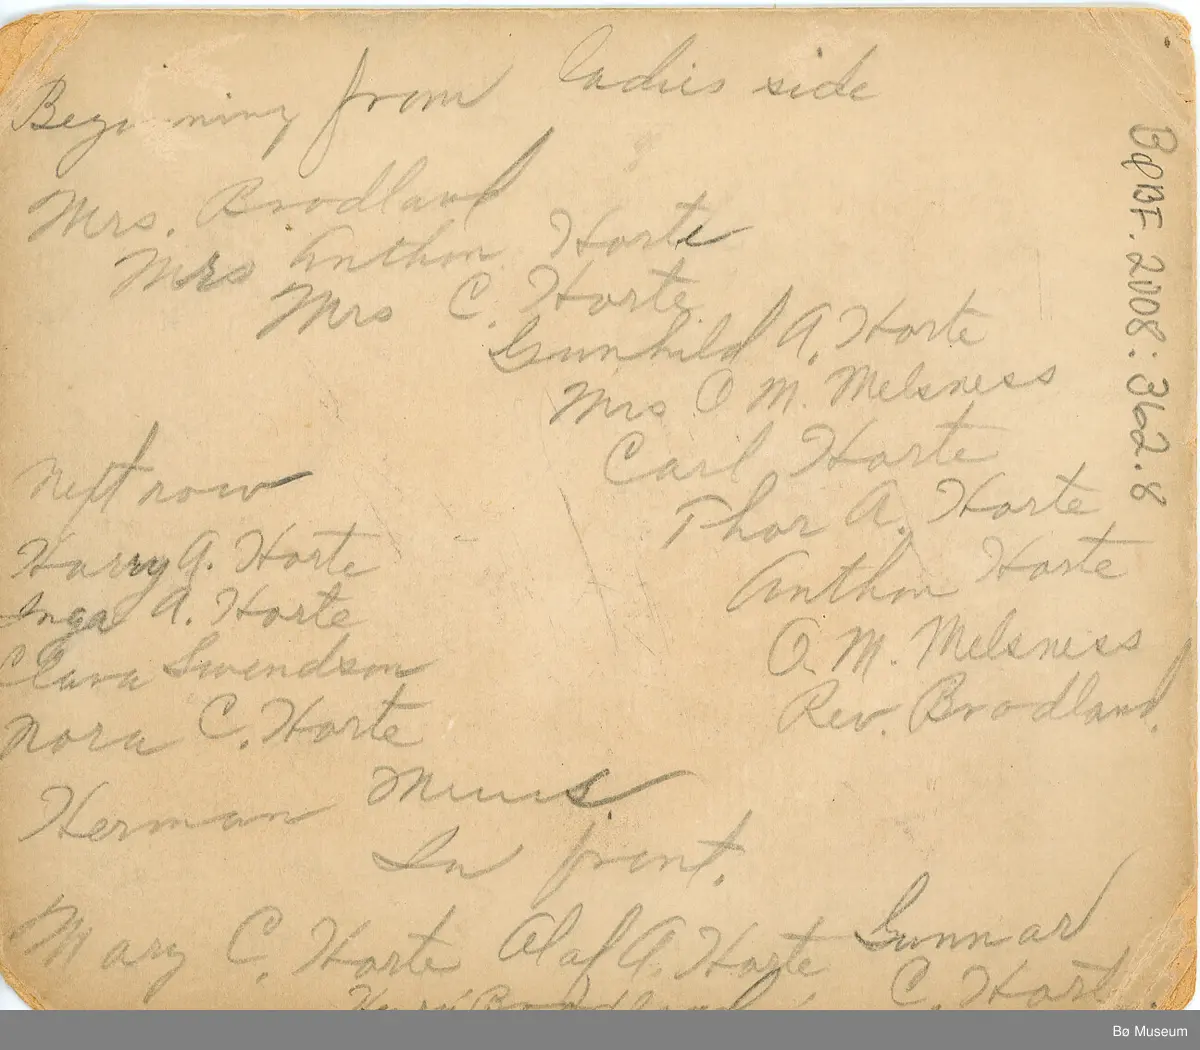 Beginning from ladies side
Mrs. Brodland
Mrs Anthon Horte
Mrs C. Horte
Gunhild A. Horte
Mrs O M. Melsness
Carl Horte
Thor A. Horte
Anthon Horte
O. M. Melsness
Rev. Brodland.
Next row
Harry A. Horte
Inga A. Horte
Clara Swendson
Nora C. Horte
Herman
In front.
Mary C. Horte Olaf A. Horte Gunnar
C. Horte
Brodland
BøBF.2008:362.8
Bø Museum